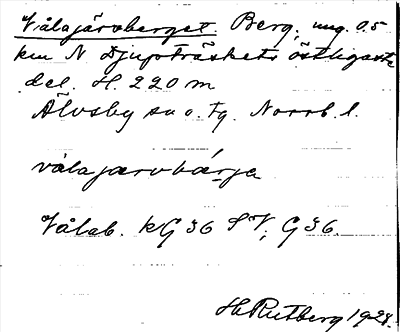 Vålajärvberget. Berg, ung. 0.5
km N Djupträskets östligaste
del. H. 220 m
Älvsby sn o. tg. Norrb. l.
vålajarvbárja
Vålab. kG 36 SV; G 36.
H Rutberg 1928.